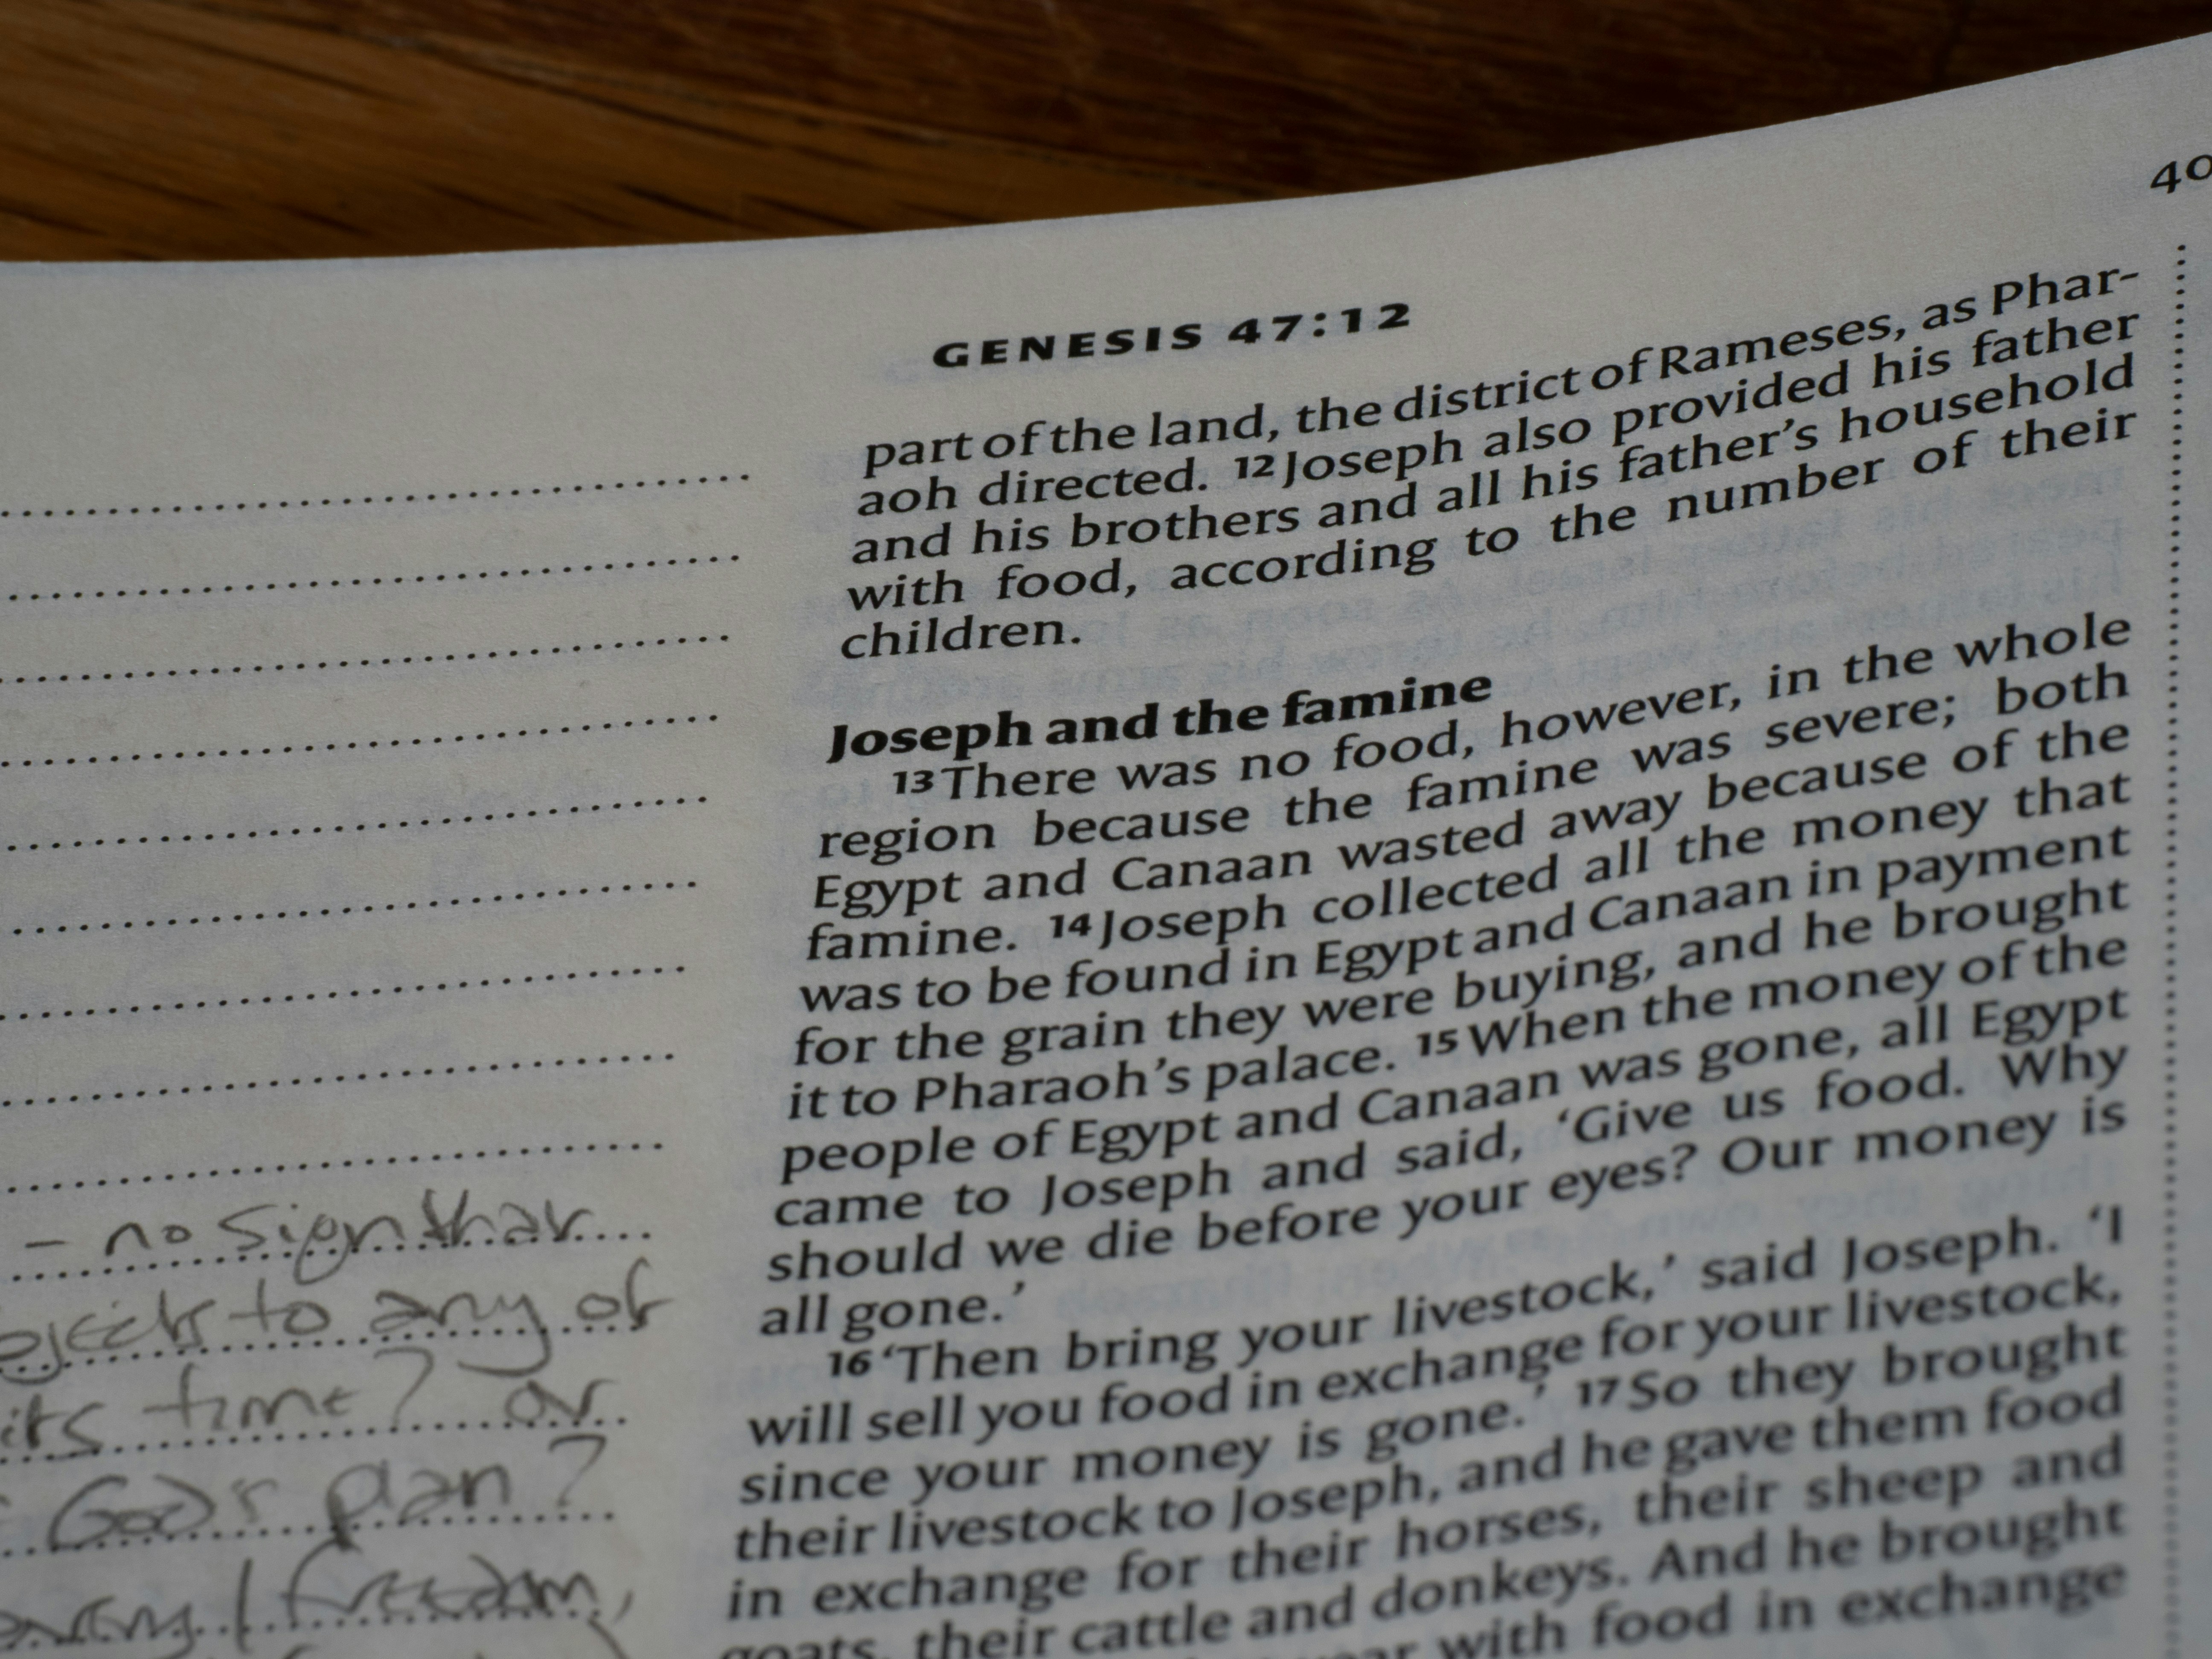 40
GENESIS 47:12
part of the land, the district of Rameses, as Phar-
aoh directed. 12 Joseph also provided his father
and his brothers and all his father's household
with food, according to the number of their
children.
Joseph and the famine
13 There was no food, however, in the whole
region because the famine was severe; both
Egypt and Canaan wasted away because of the
famine. 14 Joseph collected all the money that
was to be found in Egypt and Canaan in payment
for the grain they were buying, and he brought
it to Pharaoh's palace. 15 When the money of the
people of Egypt and Canaan was gone, all Egypt
came to Joseph and said, ‘Give us food. Why
should we die before your eyes? Our money is
all gone.’
16 ‘Then bring your livestock,’ said Joseph. ‘I
will sell you food in exchange for your livestock,
since your money is gone.’ 17 So they brought
their livestock to Joseph, and he gave them food
in exchange for their horses, their sheep and
goats, their cattle and donkeys. And he brought
with food in exchange
– no sign that
to any of
its time? or
God's plan?
/ freedom,